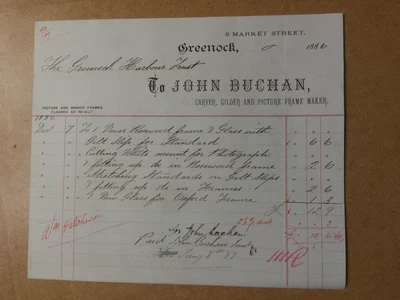 8 MARKET STREET,
Greenock, 1886
The Greenock Harbour Trust
To JOHN BUCHAN,
CARVER, GILDER AND PICTURE FRAME MAKER.
PICTURE AND MIRROR FRAMES
CLEANED OR RE-GILT
1886
Decr 7 To 1 Rosewood frame & Glass with
Gilt Slip for Standard 6 6
Cutting White mount for Photograph
& fitting up do in Rosewood frame 2 6
Stretching Standards on Gilt Slips
& fitting up do in Frames 2 6
New Glass for Oxford Frame 1 3
£ 12 9
Wm
for John Buchan
Paid John Buchan Junr
Jany 8th 87